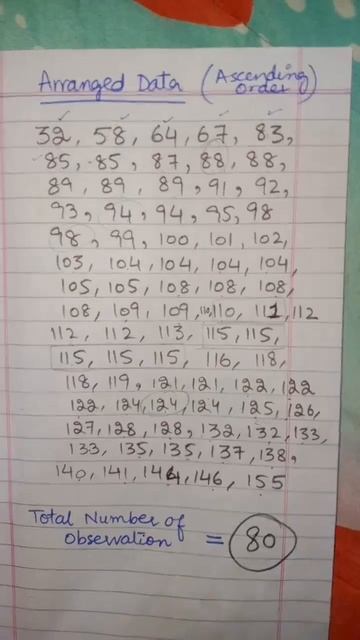 Arranged Data (Ascending Order)
32, 58, 64, 67, 83,
85, 85, 87, 88, 88,
89, 89, 89, 91, 92,
93, 94, 94, 95, 98
98, 99, 100, 101, 102,
103, 104, 104, 104, 104,
105, 105, 108, 108, 108,
108, 109, 109, 110, 110, 111, 112
112, 112, 113, 115, 115,
115, 115, 115, 116, 118,
118, 119, 121, 121, 122, 122
122, 124, 124, 124, 125, 126,
127, 128, 128, 132, 132, 133,
133, 135, 135, 137, 138,
140, 141, 144, 146, 155
Total Number of Observation = 80